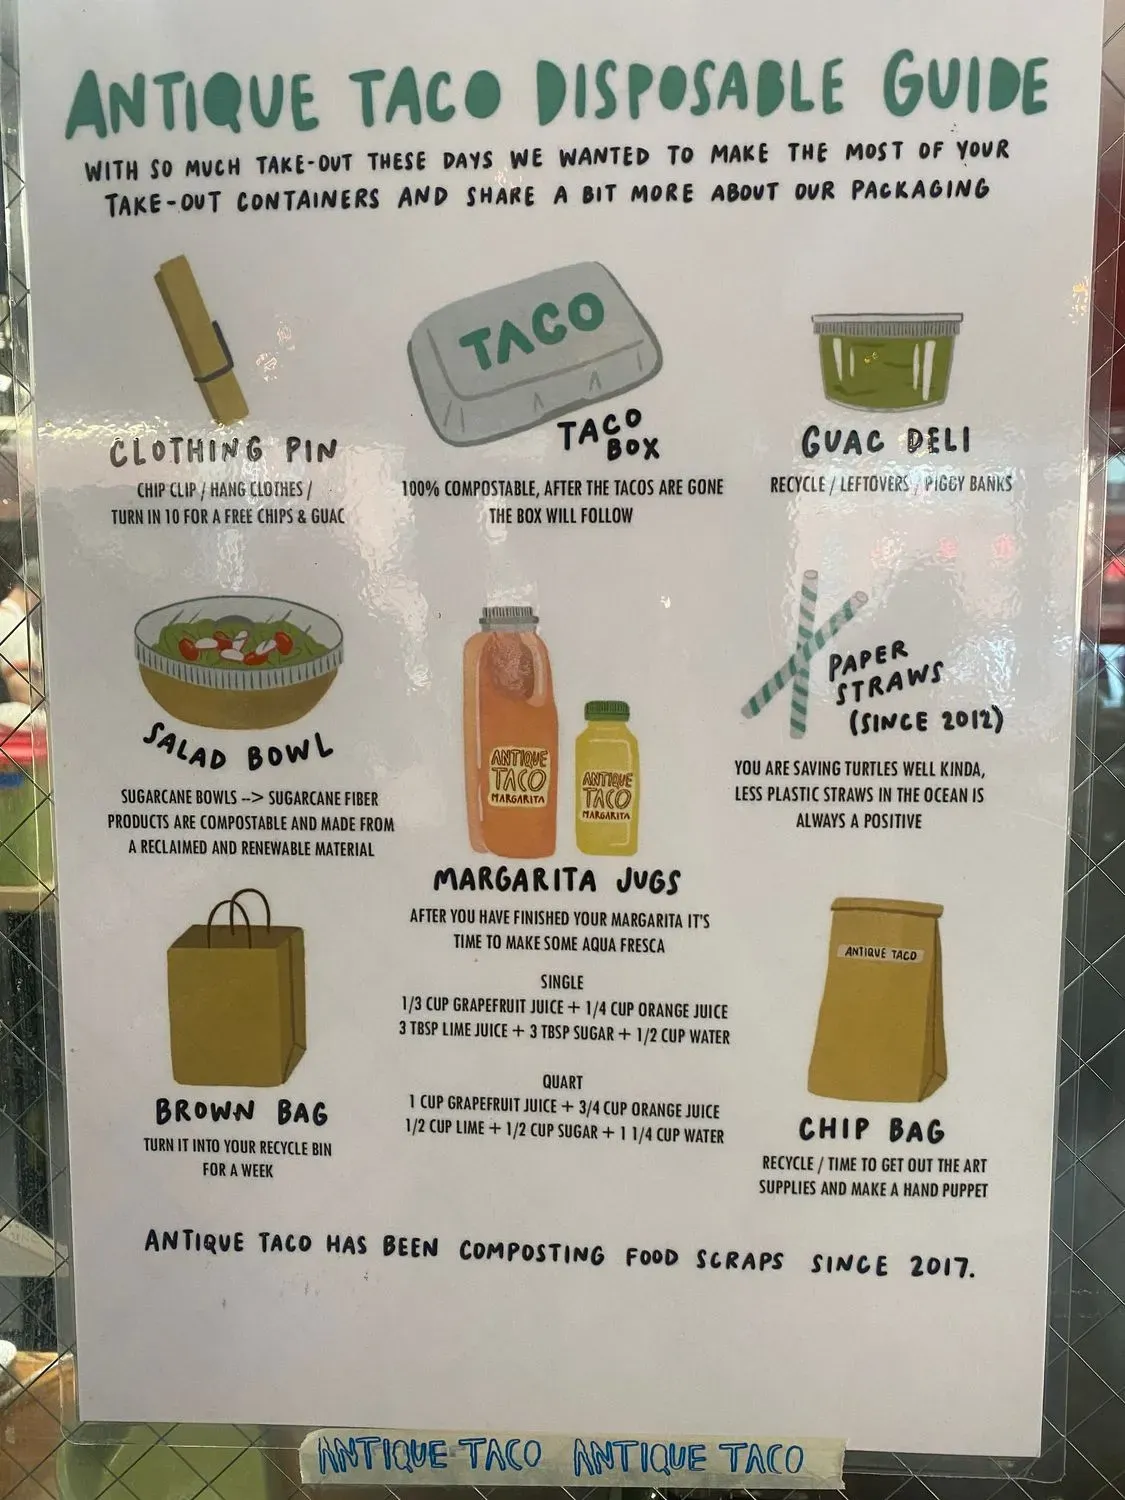 ANTIQUE TACO DISPOSABLE GUIDE
WITH SO MUCH TAKE-OUT THESE DAYS WE WANTED TO MAKE THE MOST OF YOUR
TAKE-OUT CONTAINERS AND SHARE A BIT MORE ABOUT OUR PACKAGING
CLOTHING PIN
CHIP CLIP / HANG CLOTHES /
TURN IN 10 FOR A FREE CHIPS & GUAC
TACO
TACO
BOX
100% COMPOSTABLE, AFTER THE TACOS ARE GONE
THE BOX WILL FOLLOW
GUAC DELI
RECYCLE / LEFTOVERS / PIGGY BANKS
SALAD BOWL
SUGARCANE BOWLS --> SUGARCANE FIBER
PRODUCTS ARE COMPOSTABLE AND MADE FROM
A RECLAIMED AND RENEWABLE MATERIAL
ANTIQUE
TACO
MARGARITA
ANTIQUE
TACO
MARGARITA
MARGARITA JUGS
AFTER YOU HAVE FINISHED YOUR MARGARITA IT'S
TIME TO MAKE SOME AQUA FRESCA
SINGLE
1/3 CUP GRAPEFRUIT JUICE + 1/4 CUP ORANGE JUICE
3 TBSP LIME JUICE + 3 TBSP SUGAR + 1/2 CUP WATER
QUART
1 CUP GRAPEFRUIT JUICE + 3/4 CUP ORANGE JUICE
1/2 CUP LIME + 1/2 CUP SUGAR + 1 1/4 CUP WATER
PAPER
STRAWS
(SINCE 2012)
YOU ARE SAVING TURTLES WELL KINDA,
LESS PLASTIC STRAWS IN THE OCEAN IS
ALWAYS A POSITIVE
BROWN BAG
TURN IT INTO YOUR RECYCLE BIN
FOR A WEEK
ANTIQUE TACO
CHIP BAG
RECYCLE / TIME TO GET OUT THE ART
SUPPLIES AND MAKE A HAND PUPPET
ANTIQUE TACO HAS BEEN COMPOSTING FOOD SCRAPS SINCE 2017.
ANTIQUE TACO ANTIQUE TACO